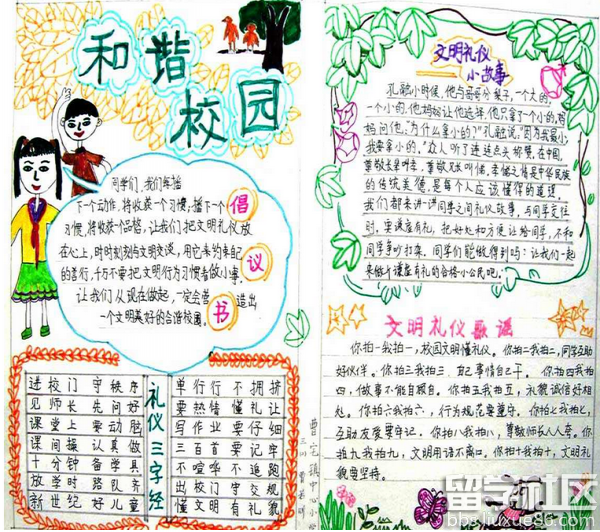 和谐
校园
同学们,我们每播
下一个动作,将收获一个习惯;播下一个
习惯,将收获一个品格,让我们把文明礼仪放
在心上,时时刻刻与文明交谈,用它来约束自己
的言行,千万不要把文明行为习惯看做小事。
让我们从现在做起,一定会营造出
一个文明美好的合谐校园。
倡
议
书
礼仪三字经
进校门 守秩序
见师长 先问好
课堂上 要动脑
课间操 认真做
十分钟 备学具
放学时 路队齐
新世纪 好儿童
单行行 不拥挤
要热情 懂礼让
写作业 要仔细
三百首 要记牢
不喧呼 不追跑
出校门 守交规
懂文明 有礼貌
文明礼仪
小故事
孔融小时候,他与哥哥分梨子,一个大的,
一个小的,他妈妈让他选择,他只拿了一个小的,妈
妈问他,为什么拿小的?"孔融说,"因为我最小,
我要拿小的。"众人听了连连点头称赞,在中国,
尊敬长辈呼幸,尊敬兄长叫悌,孝悌之情是中华民族
的传统美德,是每个人应该懂得的道理。
我们都来讲一讲同学之间礼仪故事,与同学交往
时,要谦虚有礼,把好处和方便让给同学,不和
同学争吵打架。同学们能做得到吗?让我们一起
来做个谦虚有礼的合格小公民吧。
文明礼仪歌谣
你拍一我拍一,校园文明懂礼仪。你拍二我拍二,同学互助
好伙伴。你拍三我拍三,自己事情自己干。你拍四我拍
四,做事不能自顾自。你拍五我拍五,礼貌诚信好相
处。你拍六我拍六,行为规范要遵守。你拍七我拍七,
互助友爱要牢记。你拍八我拍八,尊敬师长人人夸。你拍
九我拍九,文明用语不离口。你拍十我拍十,文明礼
貌要坚持。
留学社区
bbs.liuxue86.com